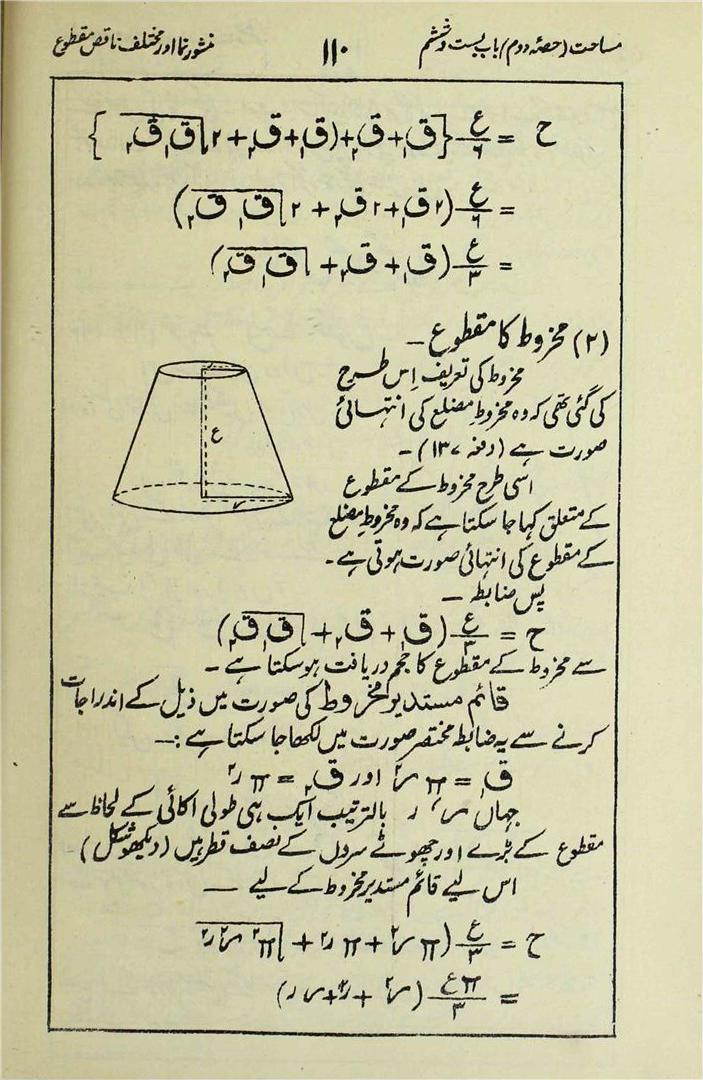 مساحت (حصۂ دوم) باب بست و ششم ۱۱۰ منشور نما اور مختلف ناقص مقطوع
ح = ع/۶ {ق۱ + ق۲ + (ق۱ + ق۲ + ۲√(ق۱ ق۲)}
= ع/۶ (۲ق۱ + ۲ق۲ + ۲√(ق۱ ق۲))
= ع/۳ (ق۱ + ق۲ + √(ق۱ ق۲))
(۲) مخروط کا مقطوع ۔
مخروط کی تعریف اِس طرح
کی گئی تھی کہ وہ مخروطِ مضلع کی انتہائی
صورت ہے (دفعہ ۱۳۷) ۔
اسی طرح مخروط کے مقطوع
کے متعلق کہا جا سکتا ہے کہ وہ مخروطِ مضلع
کے مقطوع کی انتہائی صورت ہوتی ہے ۔
ع
پس ضابطہ ۔
ح = ع/۳ (ق۱ + ق۲ + √(ق۱ ق۲))
سے مخروط کے مقطوع کا حجم دریافت ہو سکتا ہے ۔
قائم مستدیر مخروط کی صورت میں ذیل کے اندراجات
کرنے سے یہ ضابطہ مختصر صورت میں لکھا جا سکتا ہے :۔
ق۱ = π س۲ اور ق۲ = π ر۲
جہاں س، ر بالترتیب ایک ہی طولی اکائی کے لحاظ سے
مقطوع کے بڑے اور چھوٹے سروں کے نصف قطر ہیں (دیکھو شکل) ۔
اس لیے قائم مستدیر مخروط کے لیے ۔
ح = ع/۳ (π س۲ + π ر۲ + √(π۲ س۲ ر۲)
= πع/۳ (س۲ + ر۲ + س ر)